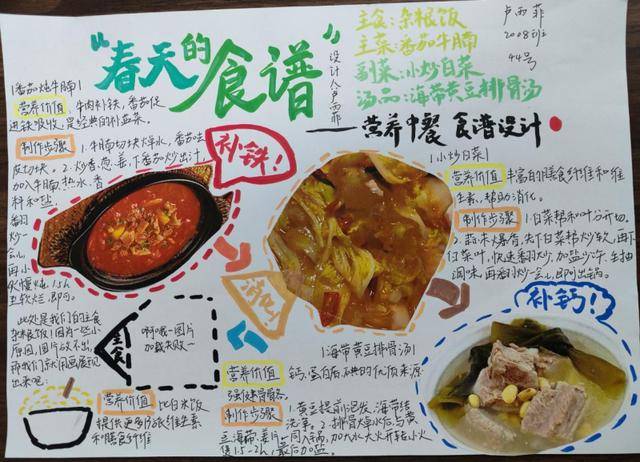 “春天的食谱”
设计人卢西菲
主食:杂粮饭
主菜:番茄牛腩
副菜:小炒白菜
汤品:海带黄豆排骨汤
卢西菲
2008班
44号
营养中餐 食谱设计
|番茄炖牛腩|
营养价值 牛肉补铁,番茄促
进铁吸收,是经典的补血菜。
制作步骤 1.牛腩切块焯水,番茄去
皮切块。2.炒香葱姜,下番茄炒出汁,
加入牛腩,热水,香
料和盐
翻
炒一
会
再小
火慢炖1.5h
至软烂即可。
补铁!
|小炒白菜|
营养价值 丰富的膳食纤维和维
生素,帮助消化。
制作步骤 1.白菜帮和叶分开切。
2.蒜末爆香,先下白菜帮炒软,再下
白菜叶,快速翻炒,加盐少许,生抽
调味,再翻炒一会儿,即可出锅。
消化!
补钙!
此处是我们的主食
杂粮饭!因为一些小
原因,图片放不出,
那我们就用画展现
出来吧:
主食
啊哦~图片
加载失败~
营养价值 比白米饭
提供更多的B族维生素
和膳食纤维
|海带黄豆排骨汤|
营养价值 钙、蛋白质、碘的优质来源
强健骨骼。
制作步骤 1.黄豆提前泡发,海带结
洗净。2.排骨焯水后,与黄
豆,海带,姜片一同入锅,加大水大火开转小火
煲1.5-2h,最后加盐。